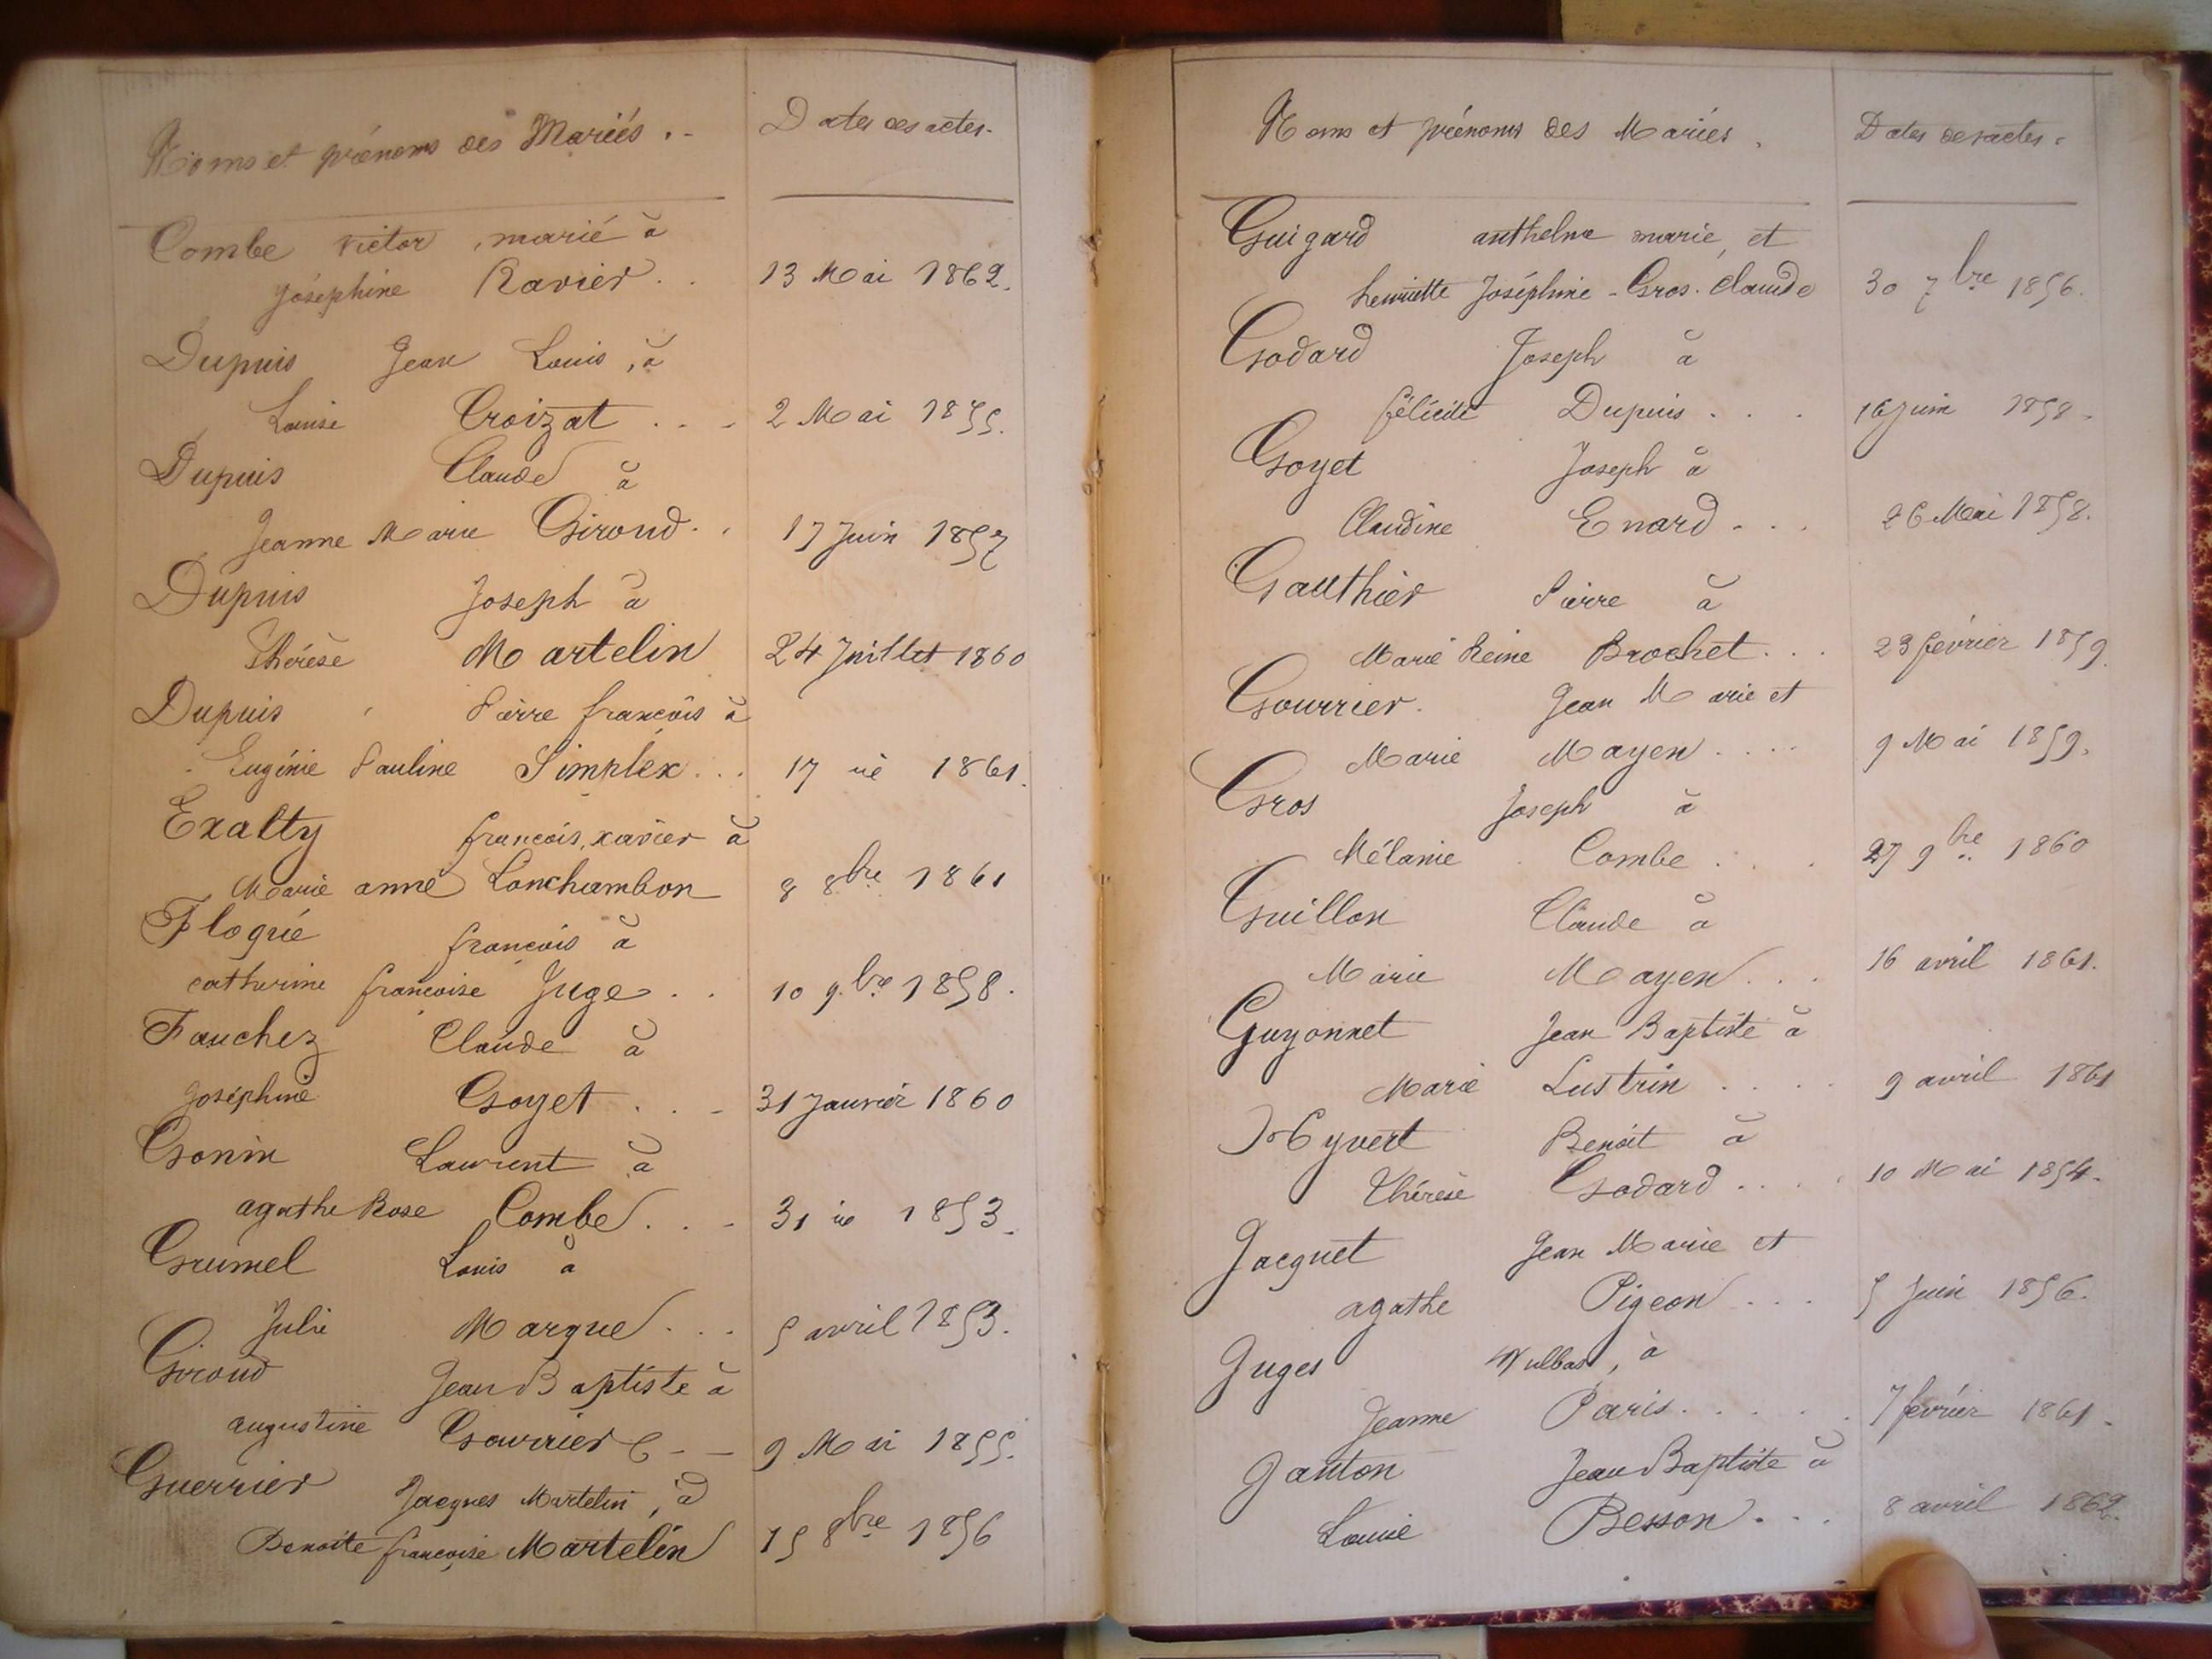 Noms et prénoms des Mariés.- Dates des actes.
Combe Victor, marié à
Joséphine Ravier.. 13 Mai 1862.
Dupuis Jean Louis, à
Louise Croizat... 2 Mai 1855.
Dupuis Claude à
Jeanne Marie Giroud.. 17 Juin 1857
Dupuis Joseph à
Thérèse Martelin 24 Juillet 1860
Dupuis Pierre françois à
Eugénie Pauline Simplex... 17 1861.
Exalty françois, xavier à
Marie anne Lonchambon 8 8bre 1861
Flogrié françois à
catherine françoise Juge.. 10 9.bre 1858.
Fauchez Claude à
Joséphine Goyet... 31 Janvier 1860
Gonin Laurent à
agathe Rose Combe... 31 1853.
Grumel Louis à
Julie Margue... 5 avril 1853.
Giroud Jean Baptiste à
augustine Gourrier 9 Mai 1855.
Guerrier Jacques Martelin, à
Benoite françoise Martelin 15 8bre 1856
Noms et prénoms des Mariés. Dates des actes.
Guigard anthelme marié, et
henriette Joséphine - Gros. Claude 30 7bre 1856.
Godard Joseph à
félicité Dupuis... 16 Juin 1858.
Goyet Joseph à
Claudine Enard... 26 Mai 1858.
Gauthier Pierre à
Marie Reine Brochet... 23 février 1859.
Gourrier. Jean Marie et
Marie Mayen.... 9 Mai 1859.
Gros Joseph à
Mélanie Combe... 27 9bre 1860
Guillon Claude à
Marie Mayen... 16 avril 1861.
Guyonnet Jean Baptiste à
Marie Lustrin.... 9 avril 1861
Hyvert Benoit à
Thérèse Godard.... 10 Mai 1854.
Jacquet Jean Marie et
agathe Pigeon... 5 Juin 1856.
Juges Vulbas, à
Jeanne Paris..... 7 février 1861.
Janton Jean Baptiste à
Louise Besson... 8 avril 1862.